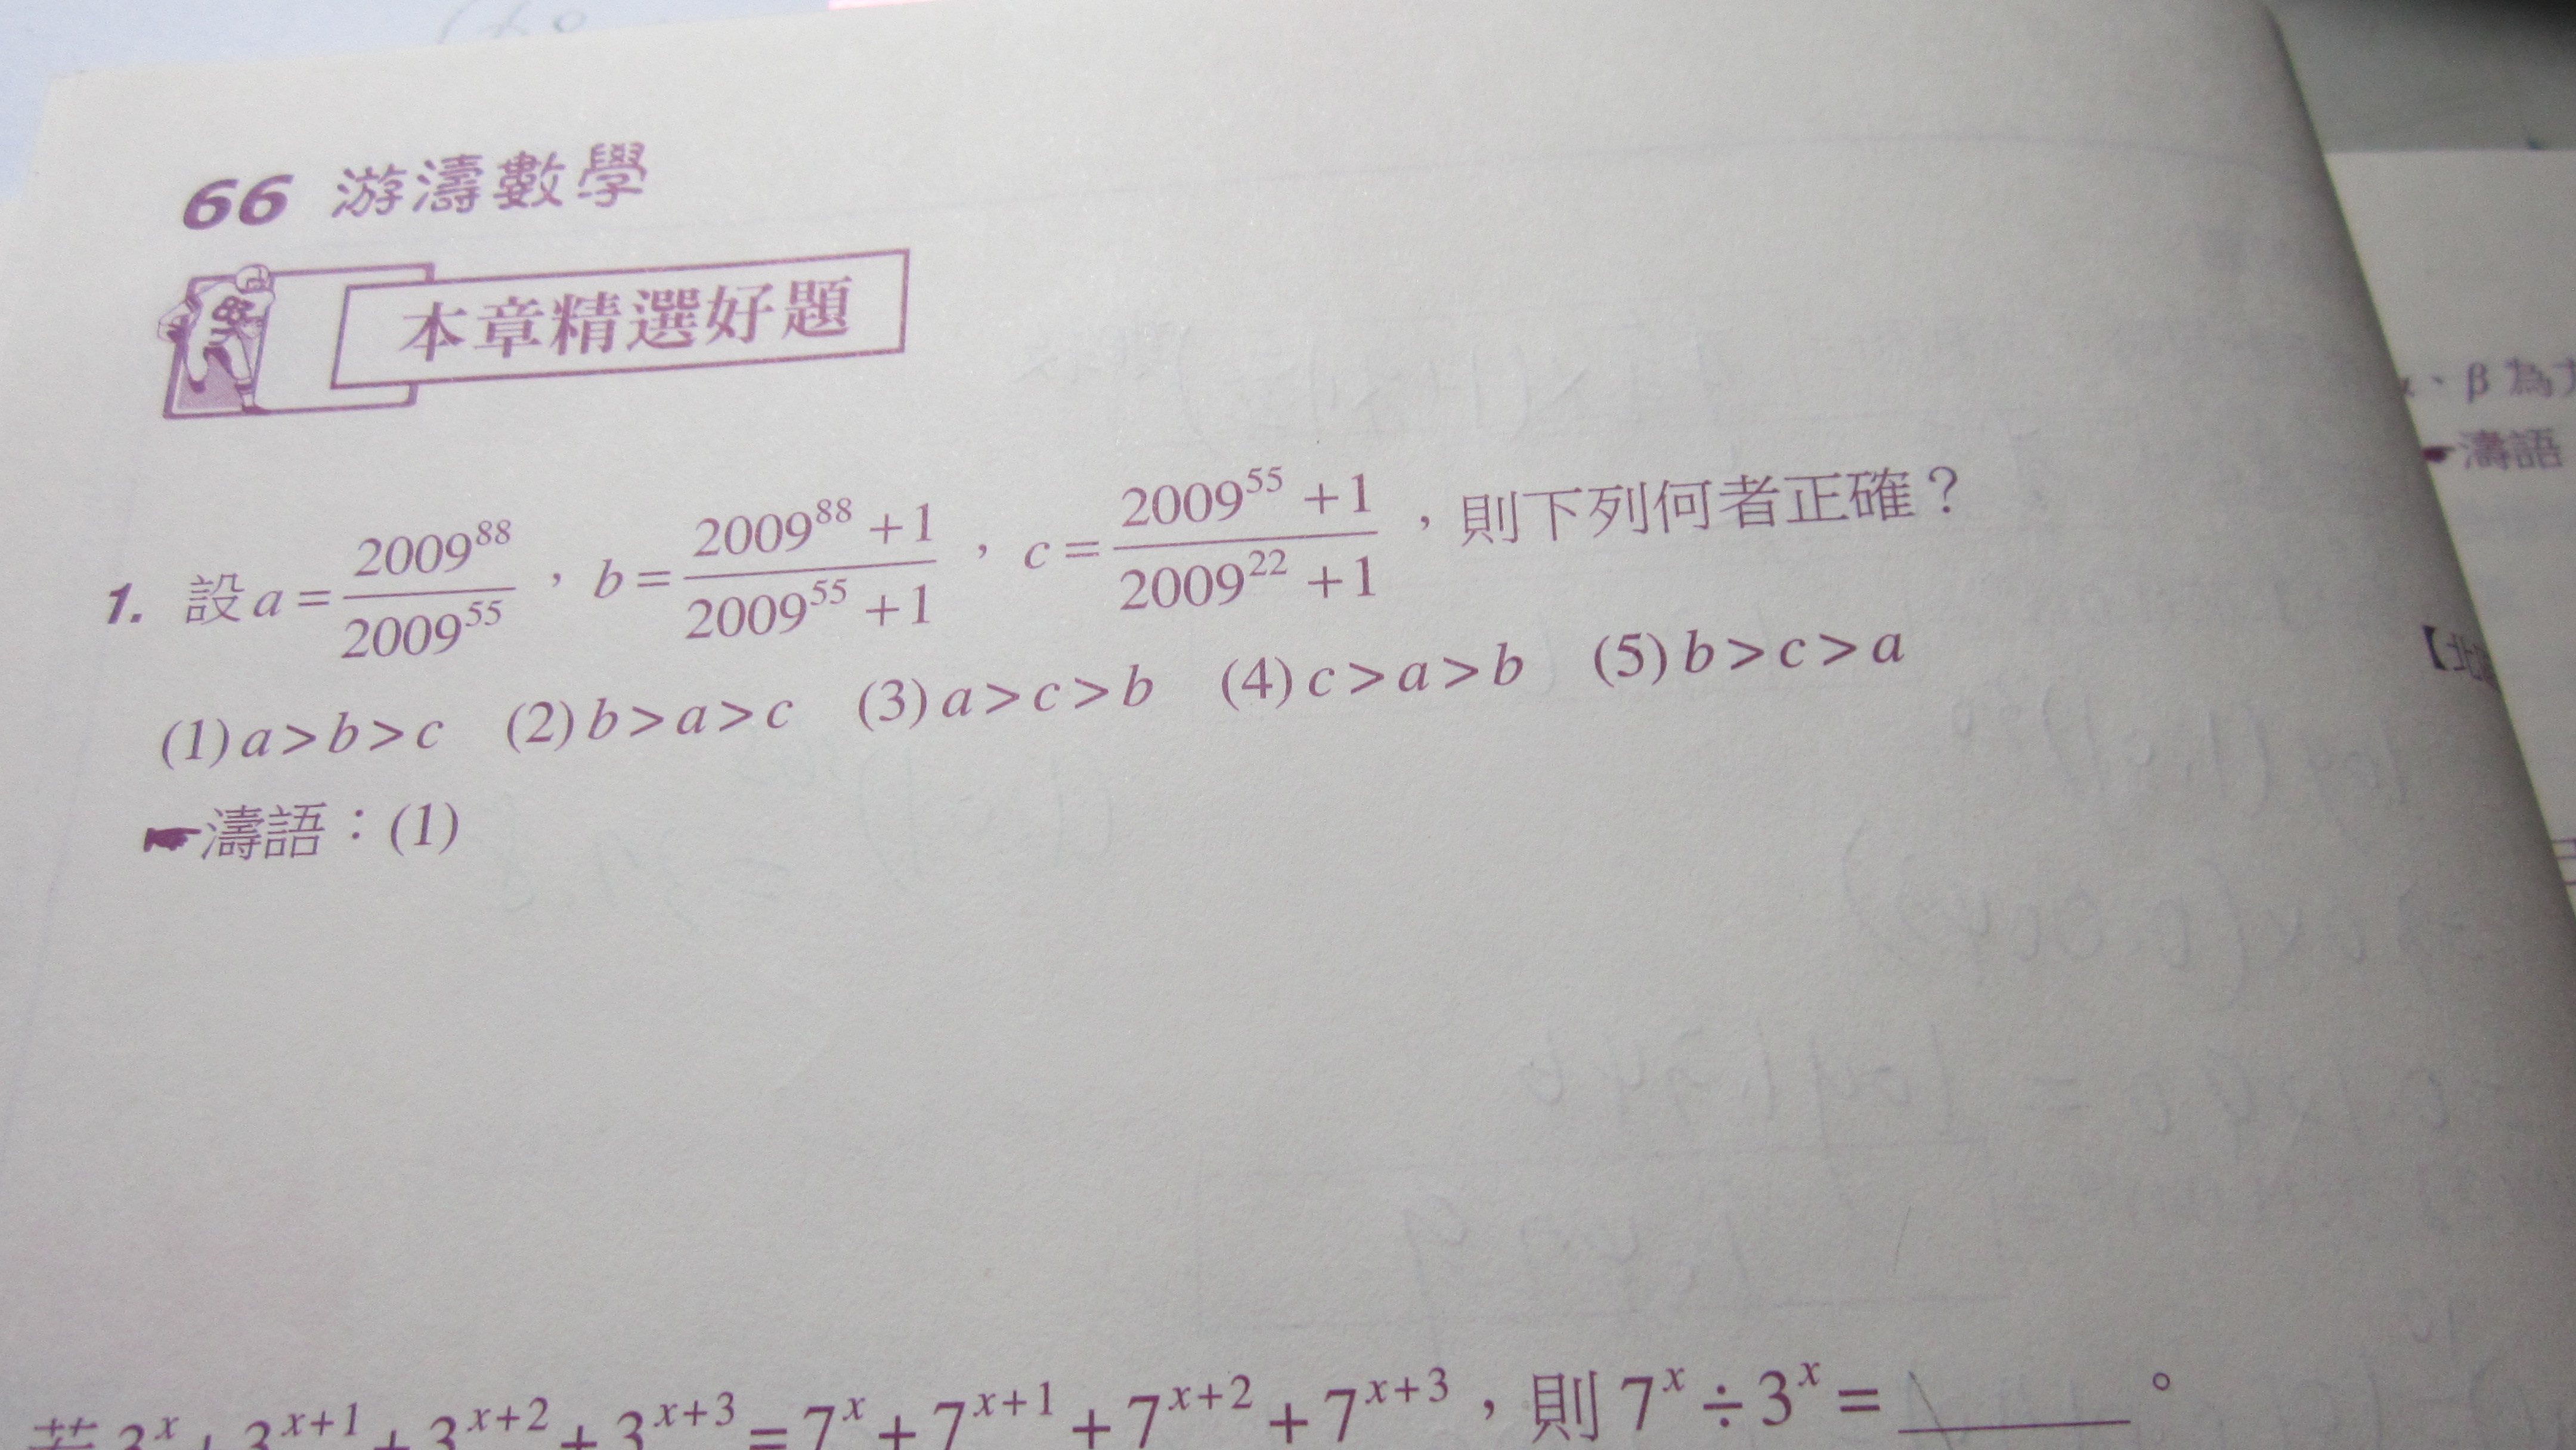 66 游濤數學
本章精選好題
1. 設 a = 2009^88 / 2009^55 , b = (2009^88 + 1) / (2009^55 + 1) , c = (2009^55 + 1) / (2009^22 + 1) ,則下列何者正確?
(1) a > b > c (2) b > a > c (3) a > c > b (4) c > a > b (5) b > c > a
☛濤語:(1)
若 3^x + 3^(x+1) + 3^(x+2) + 3^(x+3) = 7^x + 7^(x+1) + 7^(x+2) + 7^(x+3) ,則 7^x ÷ 3^x = ______ 。
、β 為
濤語